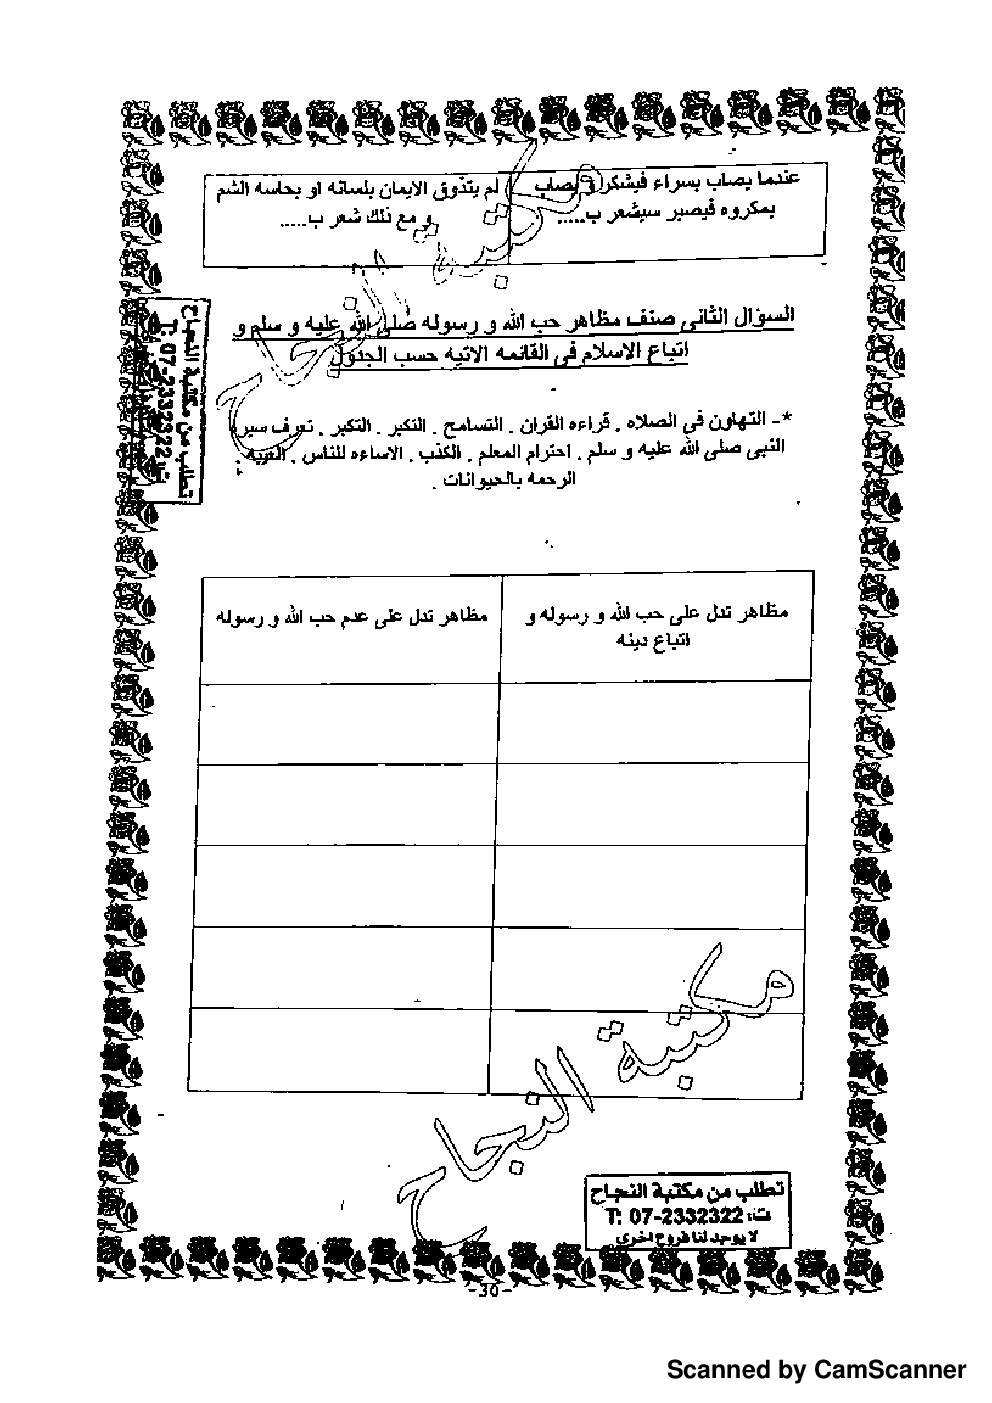 عندما يصاب بسراء فيشكر و يصاب
بمكروه فيصبر سيشعر ب.....
لم يتذوق الايمان بلسانه او بحاسه الشم
و مع ذلك شعر ب.....
السؤال الثانى صنف مظاهر حب الله و رسوله صلى الله عليه و سلم و
اتباع الاسلام فى القائمه الاتيه حسب الجدول
*- التهاون فى الصلاه . قراءه القران . التسامح . التكبر . التكبر . تعرف سيره
النبى صلى الله عليه و سلم . احترام المعلم . الكذب . الاساءه للناس . الغيبه .
الرحمه بالحيوانات .
تطلب من مكتبة النجاح
ت: T: 07-2332322
مظاهر تدل على حب الله و رسوله و
اتباع دينه
مظاهر تدل على عدم حب الله و رسوله
مكتبة النجاح
مكتبة النجاح
تطلب من مكتبة النجاح
ت: T: 07-2332322
لا يوجد لنا فروع اخرى
-30-
Scanned by CamScanner